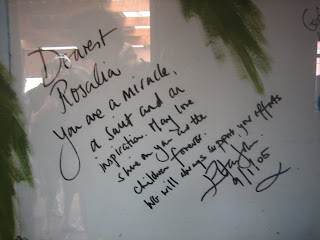 Dearest
Rosalia
You are a miracle,
a saint and an
inspiration. May love
shine on you and the
children forever.
We will always support your efforts
9/7/05